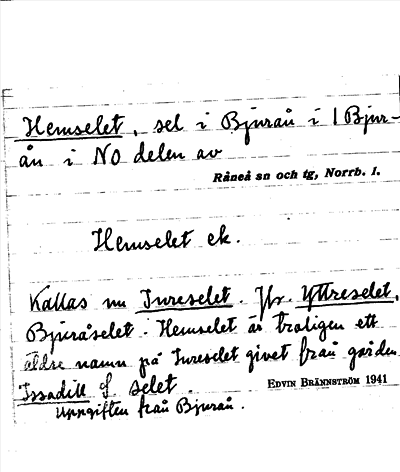 Hemselet, sel i Bjurån i 1 Bjur-
ån i NO delen av
Råneå sn och tg, Norrb. l.
Hemselet ek.
Kallas nu Inreselet. Jfr. Yttreselet,
Bjuråselet. Hemselet är troligen ett
äldre namn på Inreselet givet från gården
selet.
Uppgiften från Bjurån.
EDVIN BRÄNNSTRÖM 1941